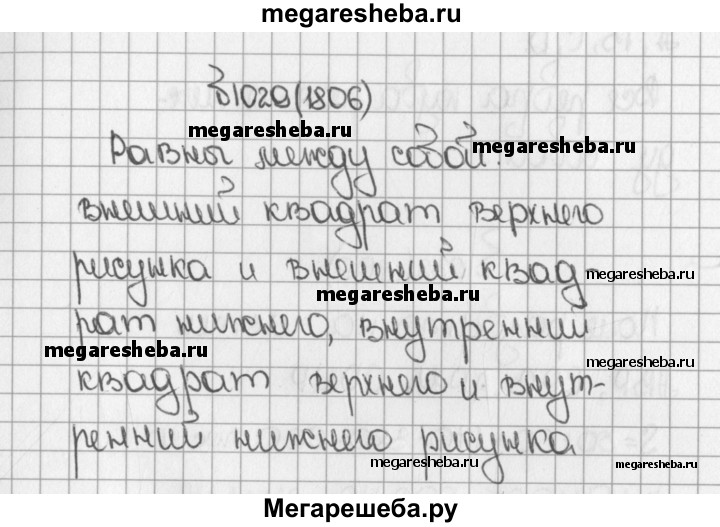 megaresheba.ru
В1020(1806)
megaresheba.ru
Равны между собой:
megaresheba.ru
внешний квадрат верхнего
рисунка и внешний квад-
megaresheba.ru
megaresheba.ru
рат нижнего, внутренний
megaresheba.ru
megaresheba.ru
квадрат верхнего и внут-
ренний нижнего рисунка
megaresheba.ru
megaresheba.ru
Мегарешеба.ру